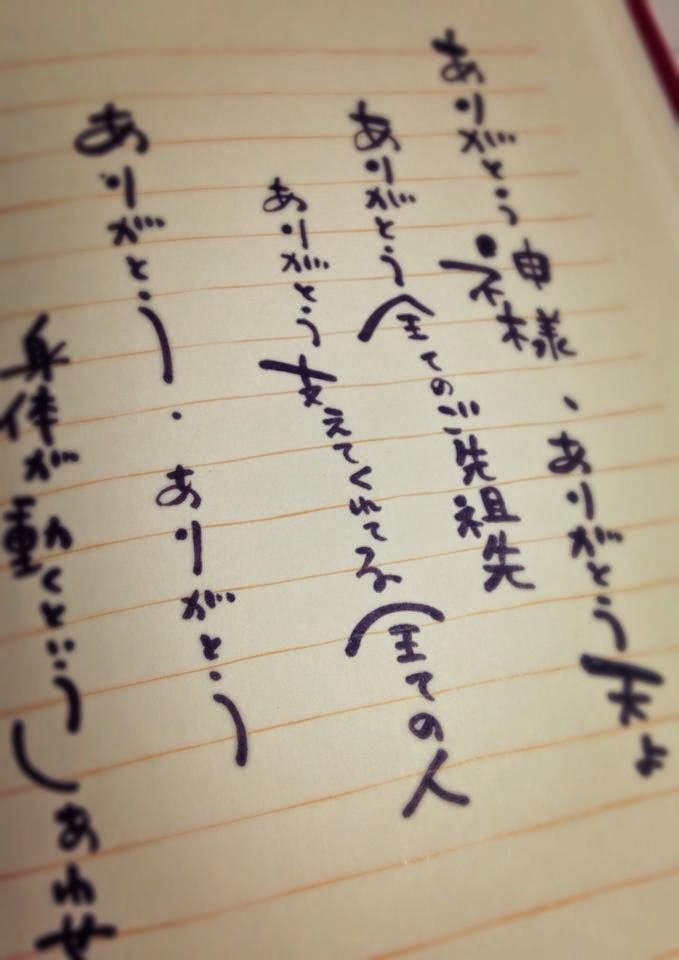 ありがとう神様、ありがとう天よ
ありがとう全てのご先祖先
ありがとう支えてくれてる全ての人
ありがとう.ありがとう
身体が動くというしあわせ